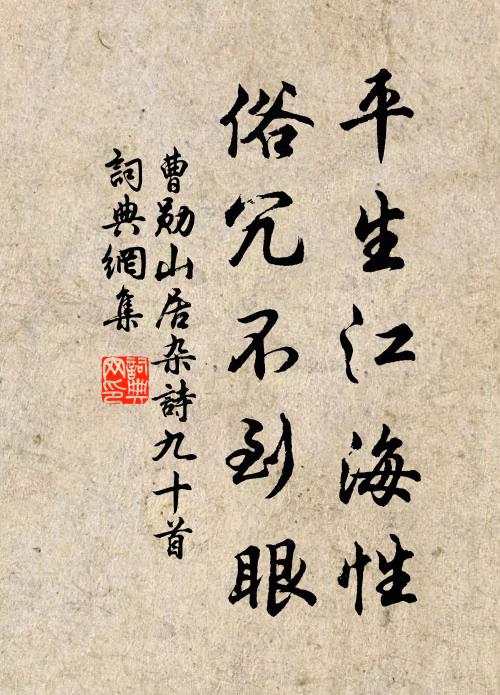 平生江海性
俗冗不到眼
曹勛山居杂詩九十首
詞典網集
詞典
网印